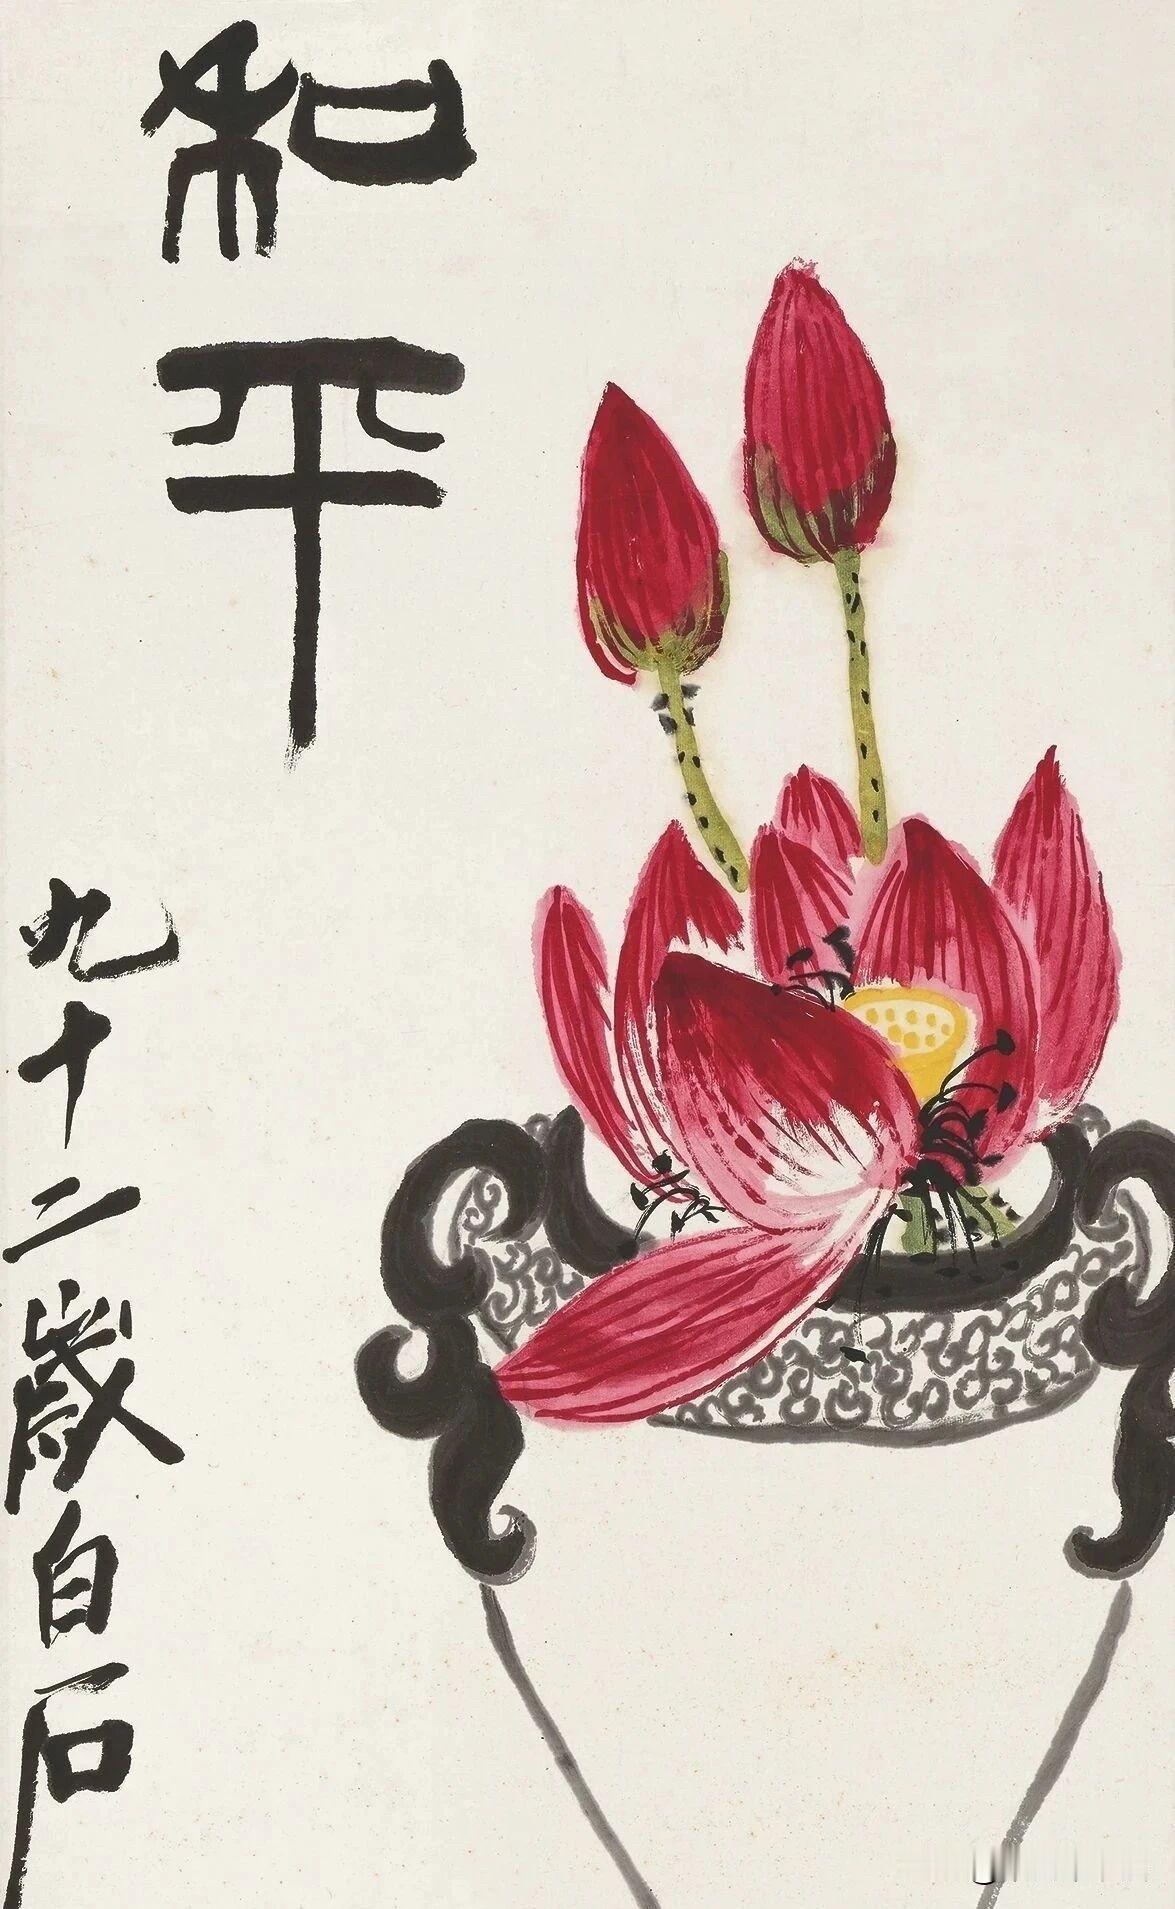 和平
九十二岁白石